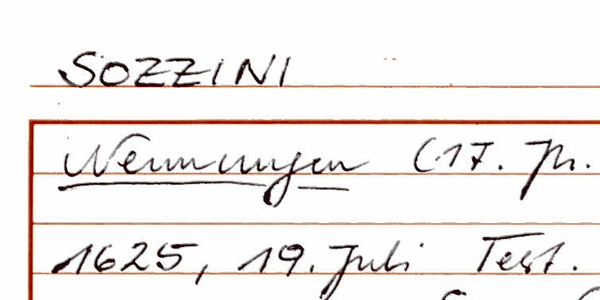 SOZZINI
Nennungen (17. Jh.
1625, 19. Juli Test.